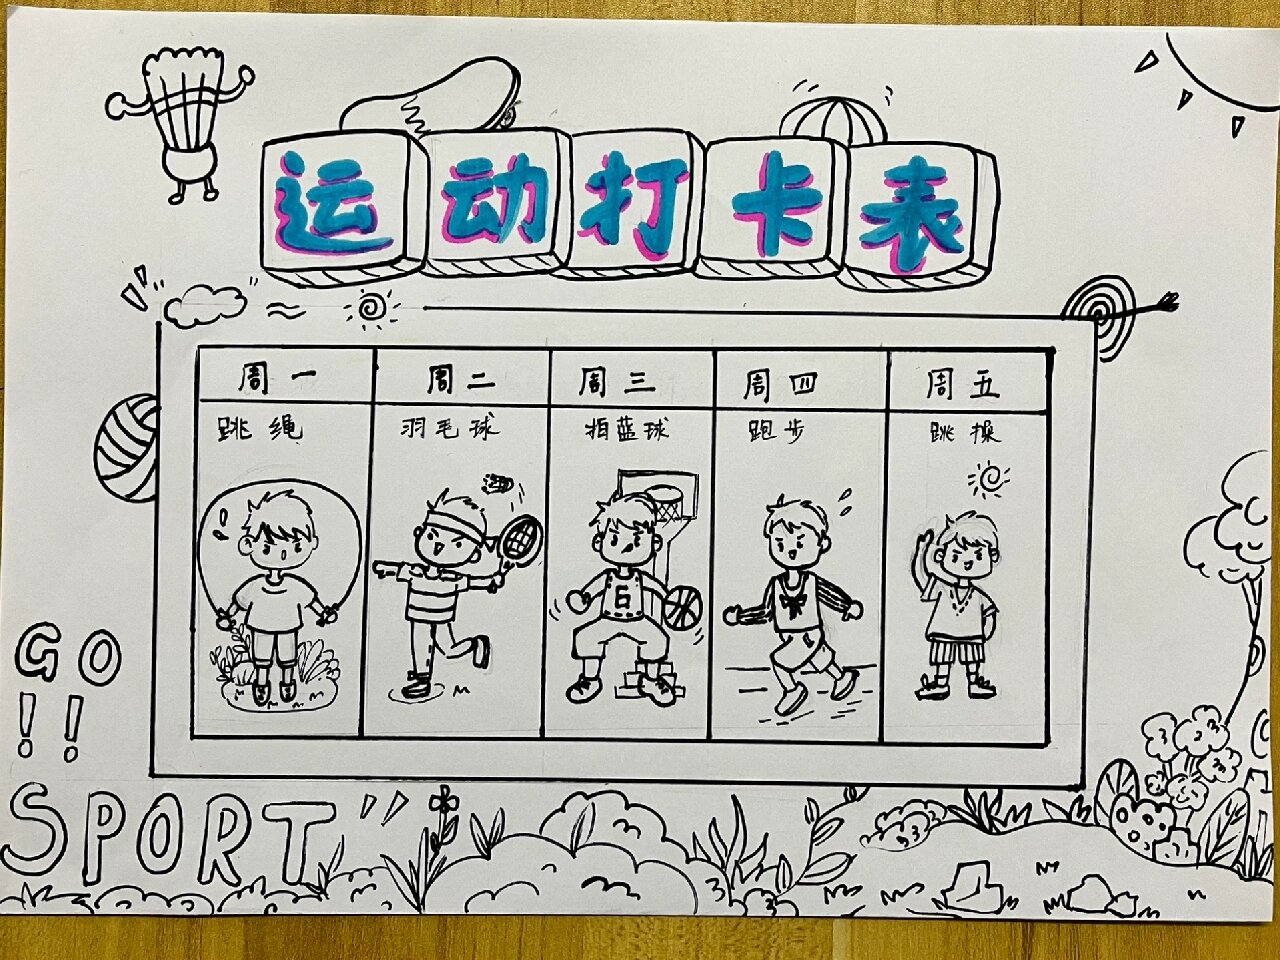 运动打卡表
周一 周二 周三 周四 周五
跳绳 羽毛球 拍蓝球 跑步 跳操
6
GO
!!
SPORT